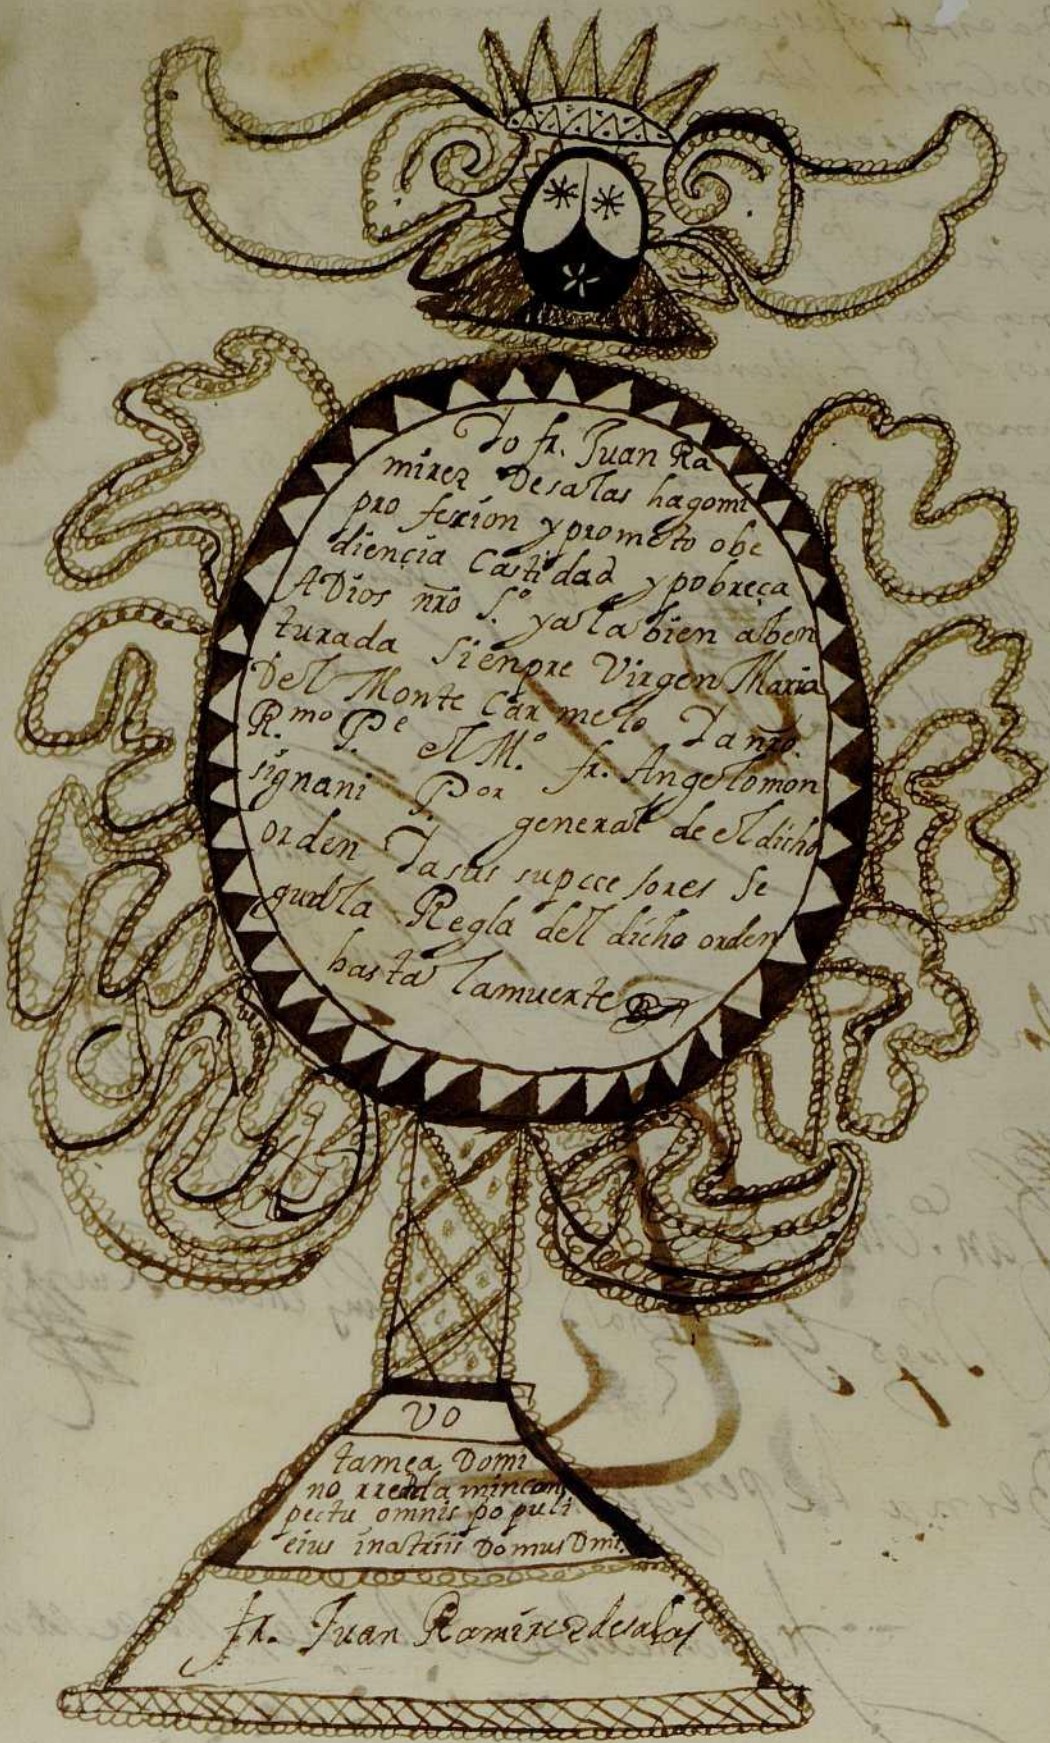 Yo fr. Juan Ra
mirez Desalas hagomi
pro fexion yprometo obe
diençia Castidad ypobreça
ADios nr̃o S.º yala bien aben
turada Sienpre Virgen Maria
Del Monte Carmelo Yanr̃o.
R.mo P.e el M.º fr. Angelomon
signani P.or general de el dicho
orden Yasus supcce sores Se
gun la Regla del dicho orden
hasta lamuerte
VO
tamea Domi
no rredda mincons
pectu omnis populi
eius inatriis Domus Dmi
fr. Juan Ramirez desalas